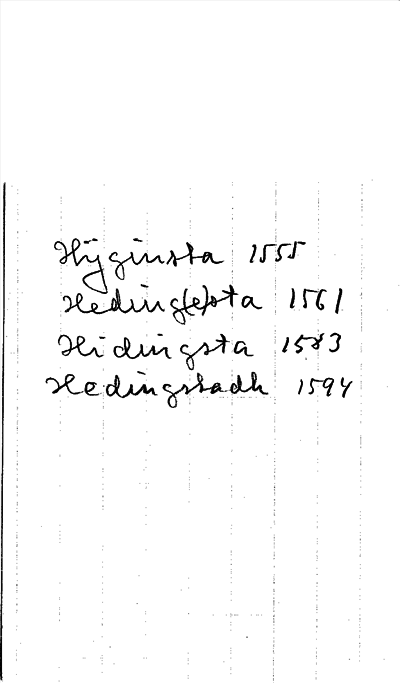 Hÿginsta 1555
Heding(e)sta 1561
Hidingsta 1583
Hedingstadh 1594